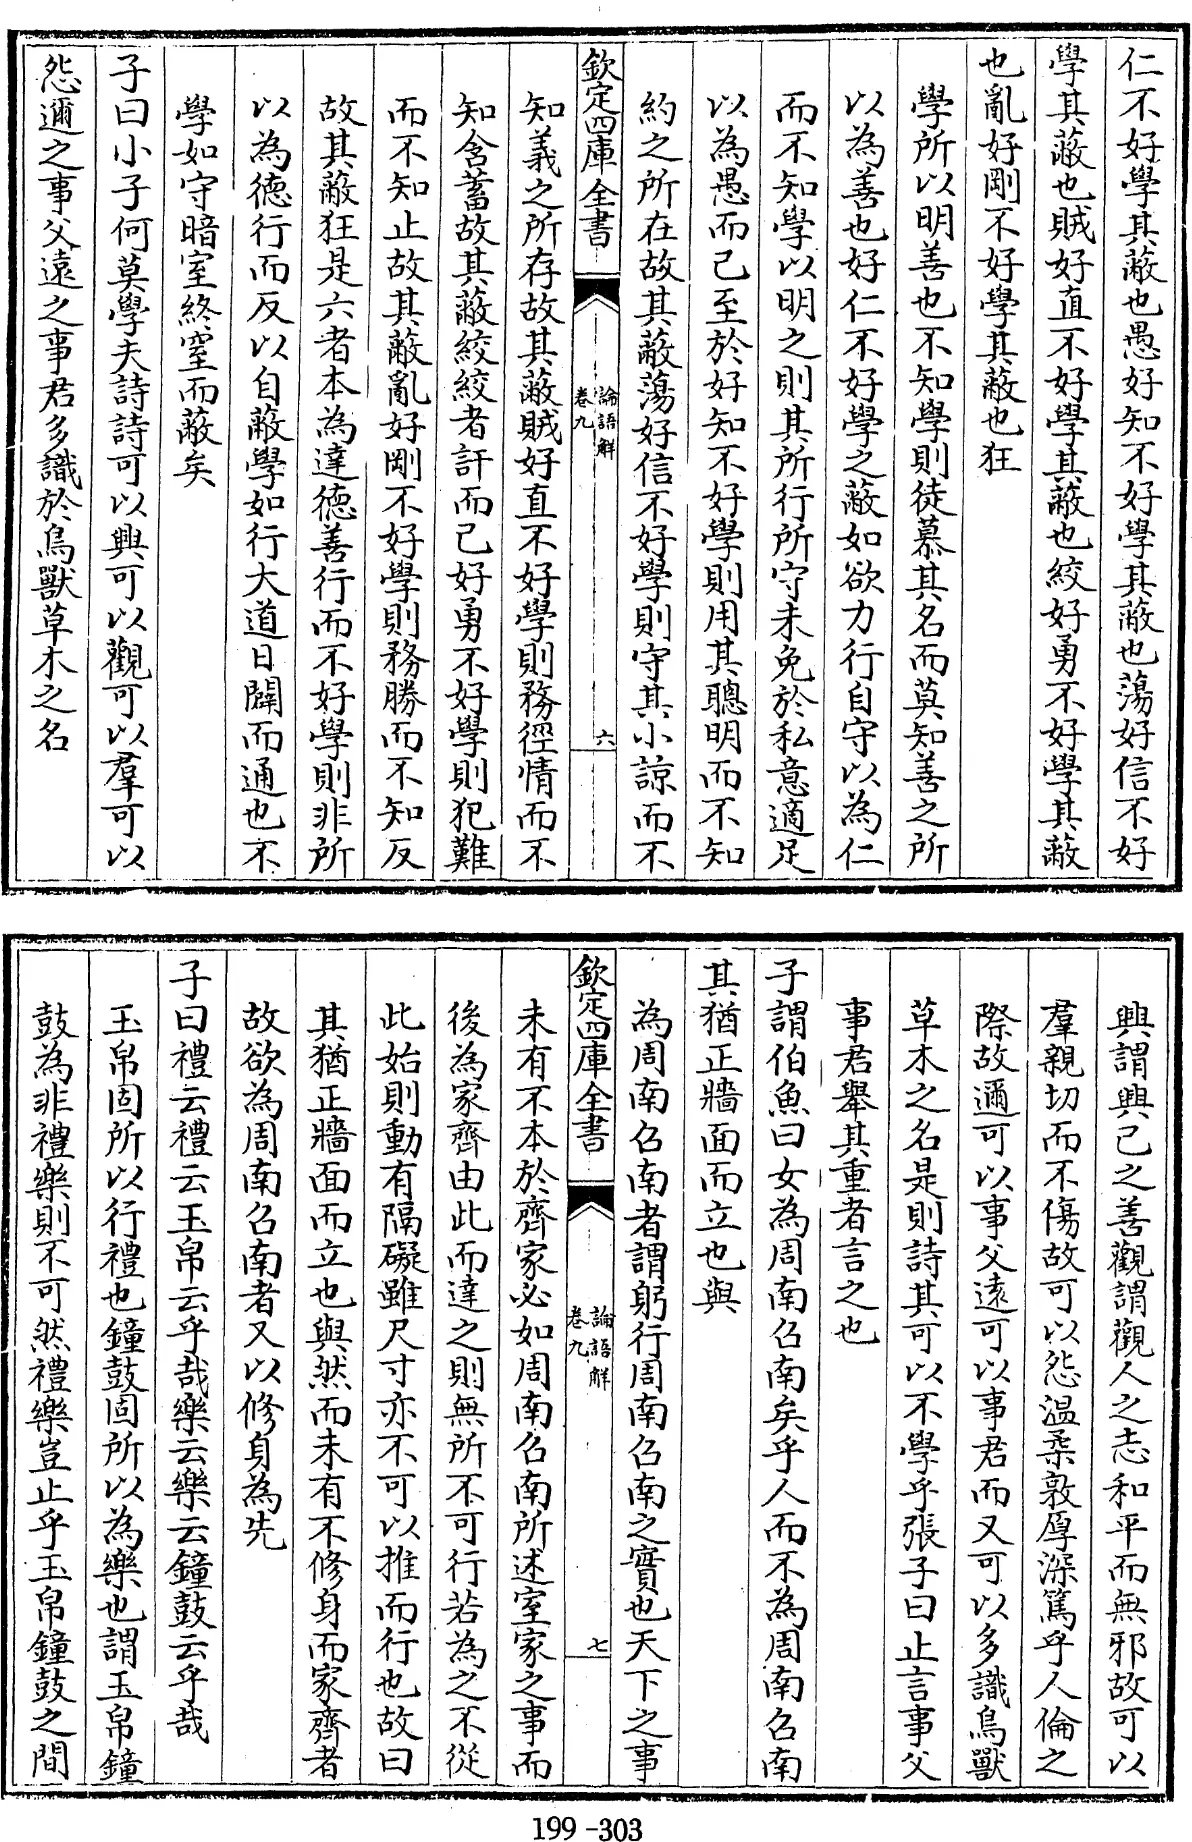 仁不好學其蔽也愚好知不好學其蔽也蕩好信不好
學其蔽也賊好直不好學其蔽也絞好勇不好學其蔽
也亂好剛不好學其蔽也狂
學所以明善也不知學則徒慕其名而莫知善之所
以為善也好仁不好學之蔽如欲力行自守以為仁
而不知學以明之則其所行所守未免於私意適足
以為愚而己至於好知不好學則用其聰明而不知
約之所在故其蔽蕩好信不好學則守其小諒而不
欽定四庫全書
論語解
卷九
六
知義之所存故其蔽賊好直不好學則務徑情而不
知含蓄故其蔽絞絞者訐而己好勇不好學則犯難
而不知止故其蔽亂好剛不好學則務勝而不知反
故其蔽狂是六者本為達德善行而不好學則非所
以為德行而反以自蔽學如行大道日闢而通也不
學如守暗室終窒而蔽矣
子曰小子何莫學夫詩詩可以興可以觀可以羣可以
怨邇之事父遠之事君多識於鳥獸草木之名
興謂興己之善觀謂觀人之志和平而無邪故可以
羣親切而不傷故可以怨溫柔敦厚深篤乎人倫之
際故邇可以事父遠可以事君而又可以多識鳥獸
草木之名是則詩其可以不學乎張子曰止言事父
事君舉其重者言之也
子謂伯魚曰女為周南召南矣乎人而不為周南召南
其猶正牆面而立也與
為周南召南者謂躬行周南召南之實也天下之事
欽定四庫全書
論語解
卷九
七
未有不本於齊家必如周南召南所述室家之事而
後為家齊由此而達之則無所不可行若為之不從
此始則動有隔礙雖尺寸亦不可以推而行也故曰
其猶正牆面而立也與然而未有不修身而家齊者
故欲為周南召南者又以修身為先
子曰禮云禮云玉帛云乎哉樂云樂云鐘鼓云乎哉
玉帛固所以行禮也鐘鼓固所以為樂也謂玉帛鐘
鼓為非禮樂則不可然禮樂豈止乎玉帛鐘鼓之間
199-303